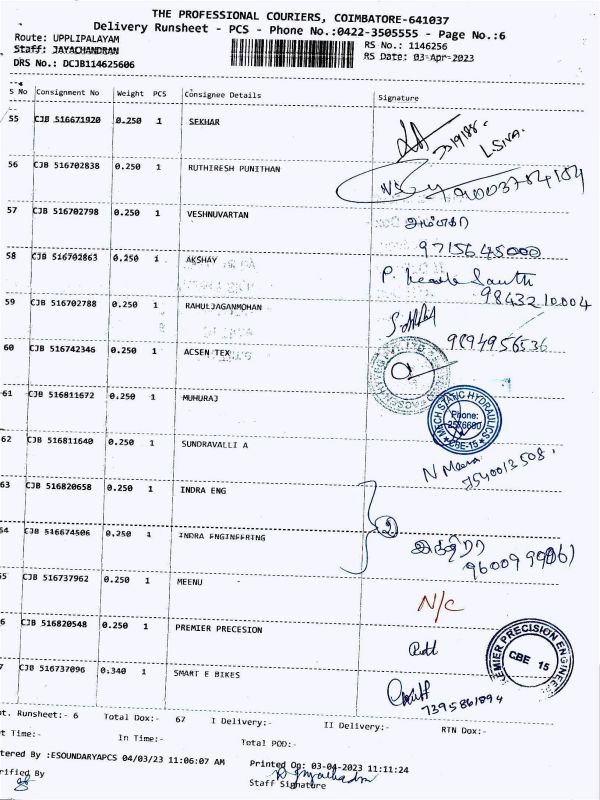 THE PROFESSIONAL COURIERS, COIMBATORE-641037
Delivery Runsheet - PCS - Phone No.:0422-3505555 - Page No.:6
Route: UPPLIPALAYAM
RS No.: 1146256
Staff: JAYACHANDRAN
RS Date: 03-Apr-2023
DRS No.: DCJB114625606
S No Consignment No Weight PCS Consignee Details Signature
55 CJB 516671920 0.250 1 SEKHAR
L.SIVA.
56 CJB 516702838 0.250 1 RUTHIRESH PUNITHAN
57 CJB 516702798 0.250 1 VESHNUVARTAN
9715645000
58 CJB 516702863 0.250 1 AKSHAY
9843210004
59 CJB 516702788 0.250 1 RAHULJAGANMOHAN
9894956536
60 CJB 516742346 0.250 1 ACSEN TEX
61 CJB 516811672 0.250 1 MUHURAJ
MECH STATIC HYDRAULICS
Phone:
CBE-15
62 CJB 516811640 0.250 1 SUNDRAVALLI A
N Meena
7540013508.
63 CJB 516820658 0.250 1 INDRA ENG
2
54 CJB 516674506 0.250 1 INDRA ENGINEERING
இந்திரா
55 CJB 516737962 0.250 1 MEENU
N/C
6 CJB 516820548 0.250 1 PREMIER PRECESION
EMIER PRECISION ENGINEER
CBE 15
7 CJB 516737096 0.340 1 SMART E BIKES
7395861894
ot. Runsheet:- 6 Total Dox:- 67 I Delivery:- II Delivery:- RTN Dox:-
t Time:- In Time:- Total POD:-
tered By :ESOUNDARYAPCS 04/03/23 11:06:07 AM Printed On: 03-04-2023 11:11:24
rified By
Staff Signature